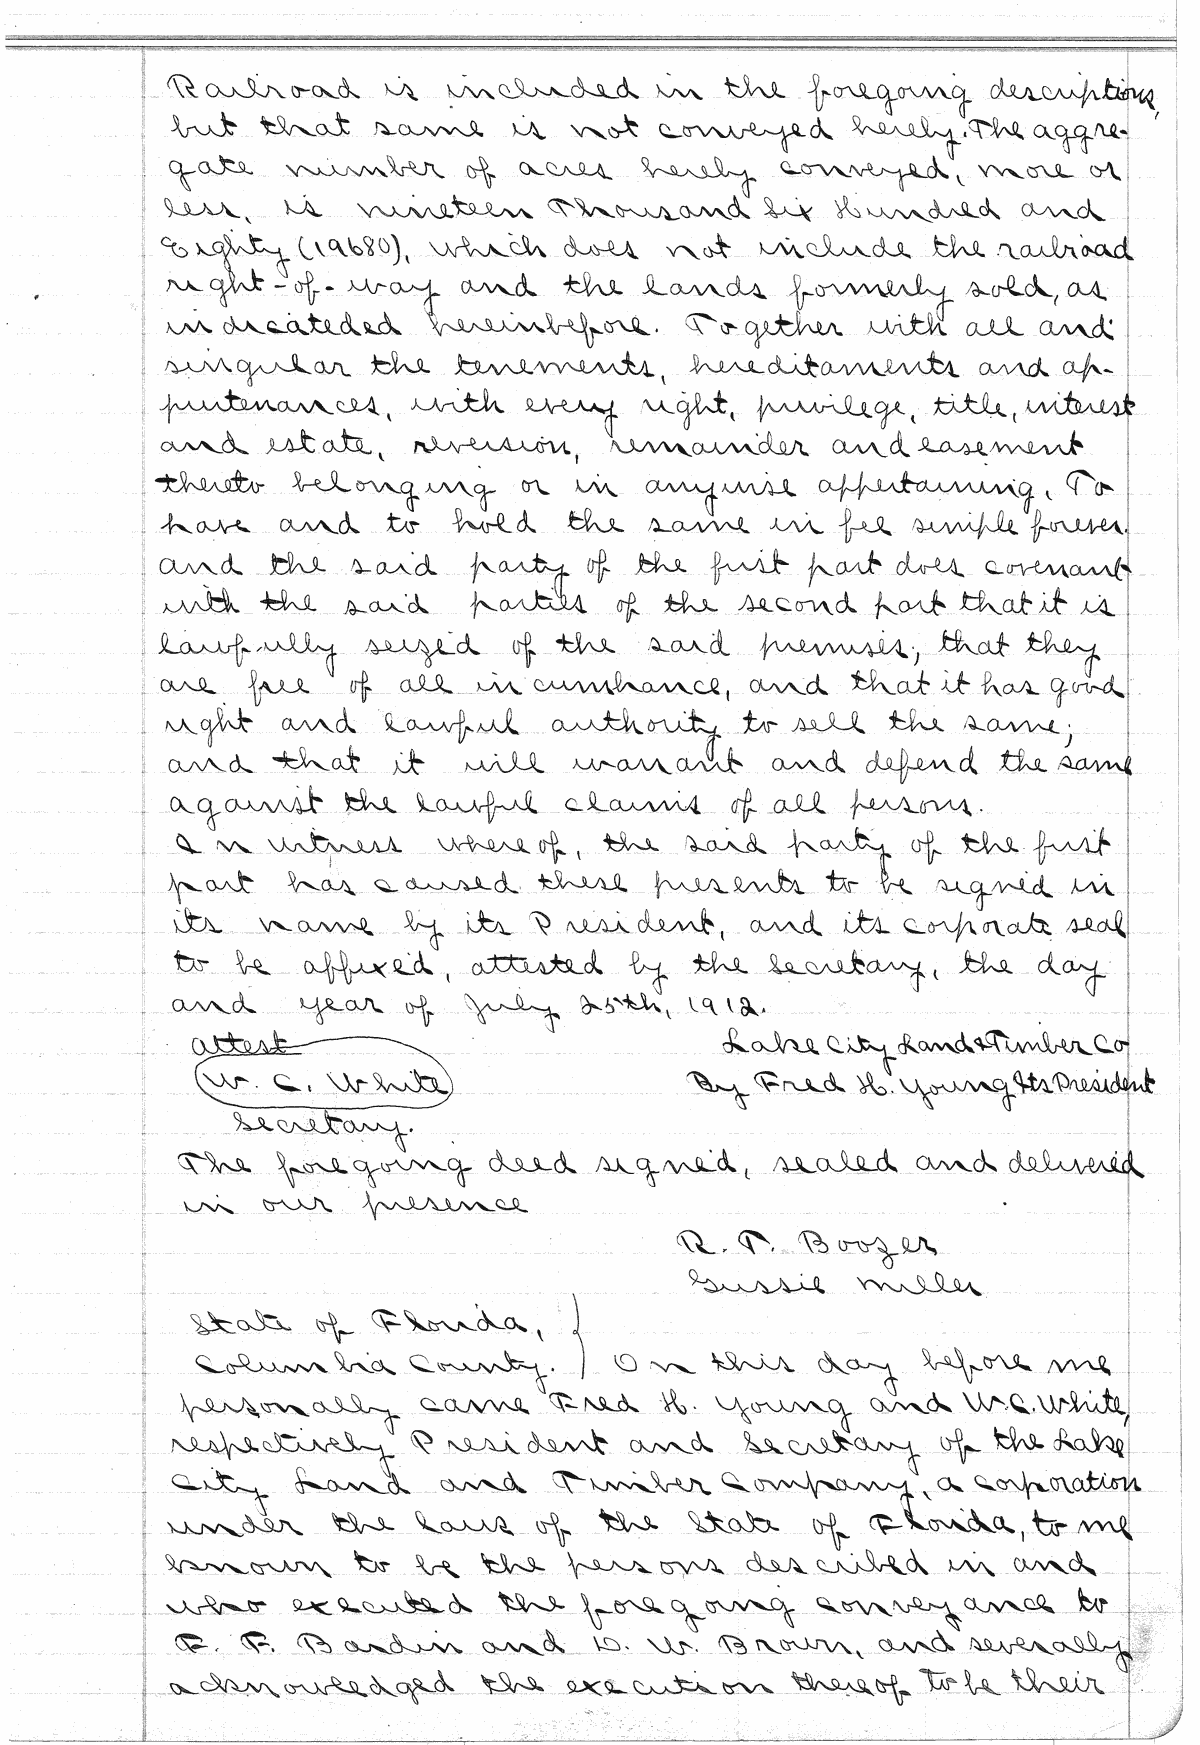 Railroad is included in the foregoing descriptions,
but that same is not conveyed hereby. The aggre-
gate number of acres hereby conveyed, more or
less, is nineteen Thousand Six Hundred and
Eighty (19680), which does not include the railroad
right-of-way and the lands formerly sold, as
indicateded hereinbefore. Together with all and
singular the tenements, hereditaments and ap-
purtenances, with every right, privilege, title, interest
and estate, reversion, remainder and easement
thereto belonging or in anywise appertaining, To
have and to hold the same in fee simple forever.
and the said party of the first part does covenant
with the said parties of the second part that it is
lawfully seized of the said premises; that they
are free of all incumbrance, and that it has good
right and lawful authority to sell the same;
and that it will warrant and defend the same
against the lawful claims of all persons.
In witness whereof, the said party of the first
part has caused these presents to be signed in
its name by its President, and its corporate seal
to be affixed, attested by the Secretary, the day
and year of July 25th, 1912.
attest Lake City Land & Timber Co
W. C. White By Fred H. Young Its President
Secretary.
The foregoing deed signed, sealed and delivered
in our presence
R. T. Boozer
Gussie Miller
State of Florida,
Columbia County. } On this day before me
personally came Fred H. Young and W. C. White,
respectively President and Secretary of the Lake
City Land and Timber Company, a corporation
under the laws of the State of Florida, to me
known to be the persons described in and
who executed the foregoing conveyance to
F. F. Bardin and D. W. Brown, and severally
acknowledged the execution thereof to be their